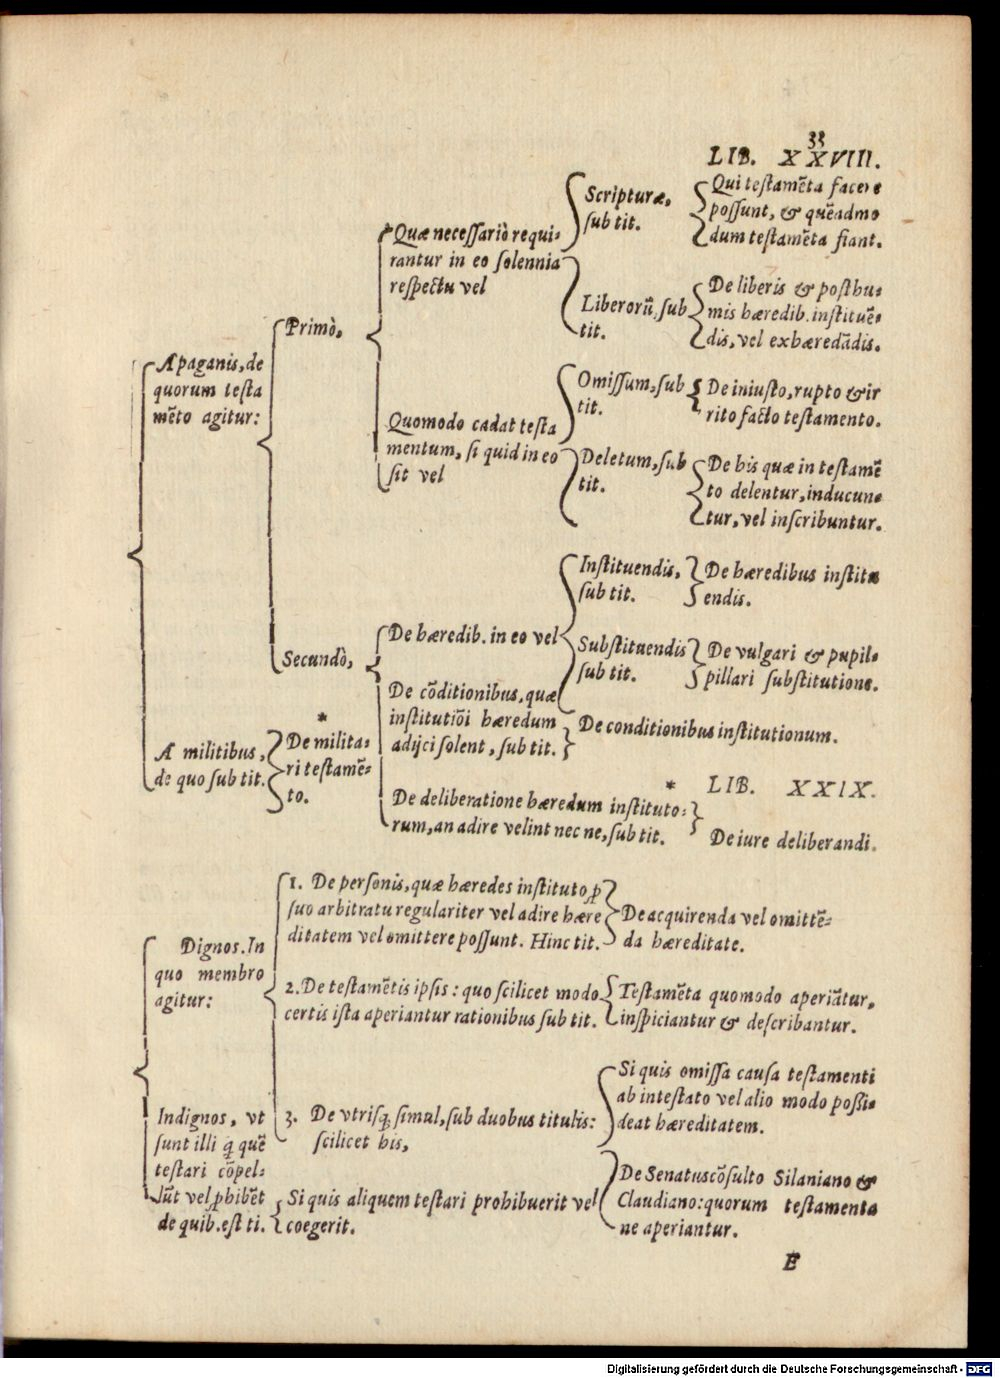 33
LIB. XXVIII.
A paganis, de
quorum testa
mēto agitur:
Primò,
Quæ necessariò requi-
rantur in eo solennia
respectu vel
Scripturæ,
sub tit.
Qui testamēta facere
possunt, & quēadmo
dum testamēta fiant.
Liberorū, sub
tit.
De liberis & posthu-
mis hæredib. instituē-
dis, vel exhæredādis.
Quomodo cadat testa
mentum, si quid in eo
sit vel
Omissum, sub
tit.
De iniusto, rupto & ir
rito facto testamento.
Deletum, sub
tit.
De his quæ in testamē
to delentur, inducun-
tur, vel inscribuntur.
Secundò,
De hæredib. in eo vel
Instituendis,
sub tit.
De hæredibus institu
endis.
Substituendis
sub tit.
De vulgari & pupil-
pillari substitutione.
De cōditionibus, quæ
institutiōi hæredum
adijci solent, sub tit.
De conditionibus institutionum.
De deliberatione hæredum instituto-
rum, an adire velint nec ne, sub tit.
* LIB. XXIX.
De iure deliberandi.
A militibus,
de quo sub tit.
*
De milita-
ri testamē-
to.
Dignos. In
quo membro
agitur:
1. De personis, quæ hæredes instituto ꝓ
suo arbitratu regulariter vel adire hære
ditatem vel omittere possunt. Hinc tit.
De acquirenda vel omittē-
da hæreditate.
2. De testamētis ipsis: quo scilicet modo
certis ista aperiantur rationibus sub tit.
Testamēta quomodo aperiātur,
inspiciantur & describantur.
3. De vtrisq; simul, sub duobus titulis:
scilicet his,
Si quis omissa causa testamenti
ab intestato vel alio modo possi-
deat hæreditatem.
De Senatuscōsulto Silaniano &
Claudiano: quorum testamenta
ne aperiantur.
Indignos, vt
sunt illi q̄ quē
testari cōpel-
lūt vel ꝓhibēt
de quib. est ti.
Si quis aliquem testari prohibuerit vel
coegerit.
E
Digitalisierung gefördert durch die Deutsche Forschungsgemeinschaft - DFG